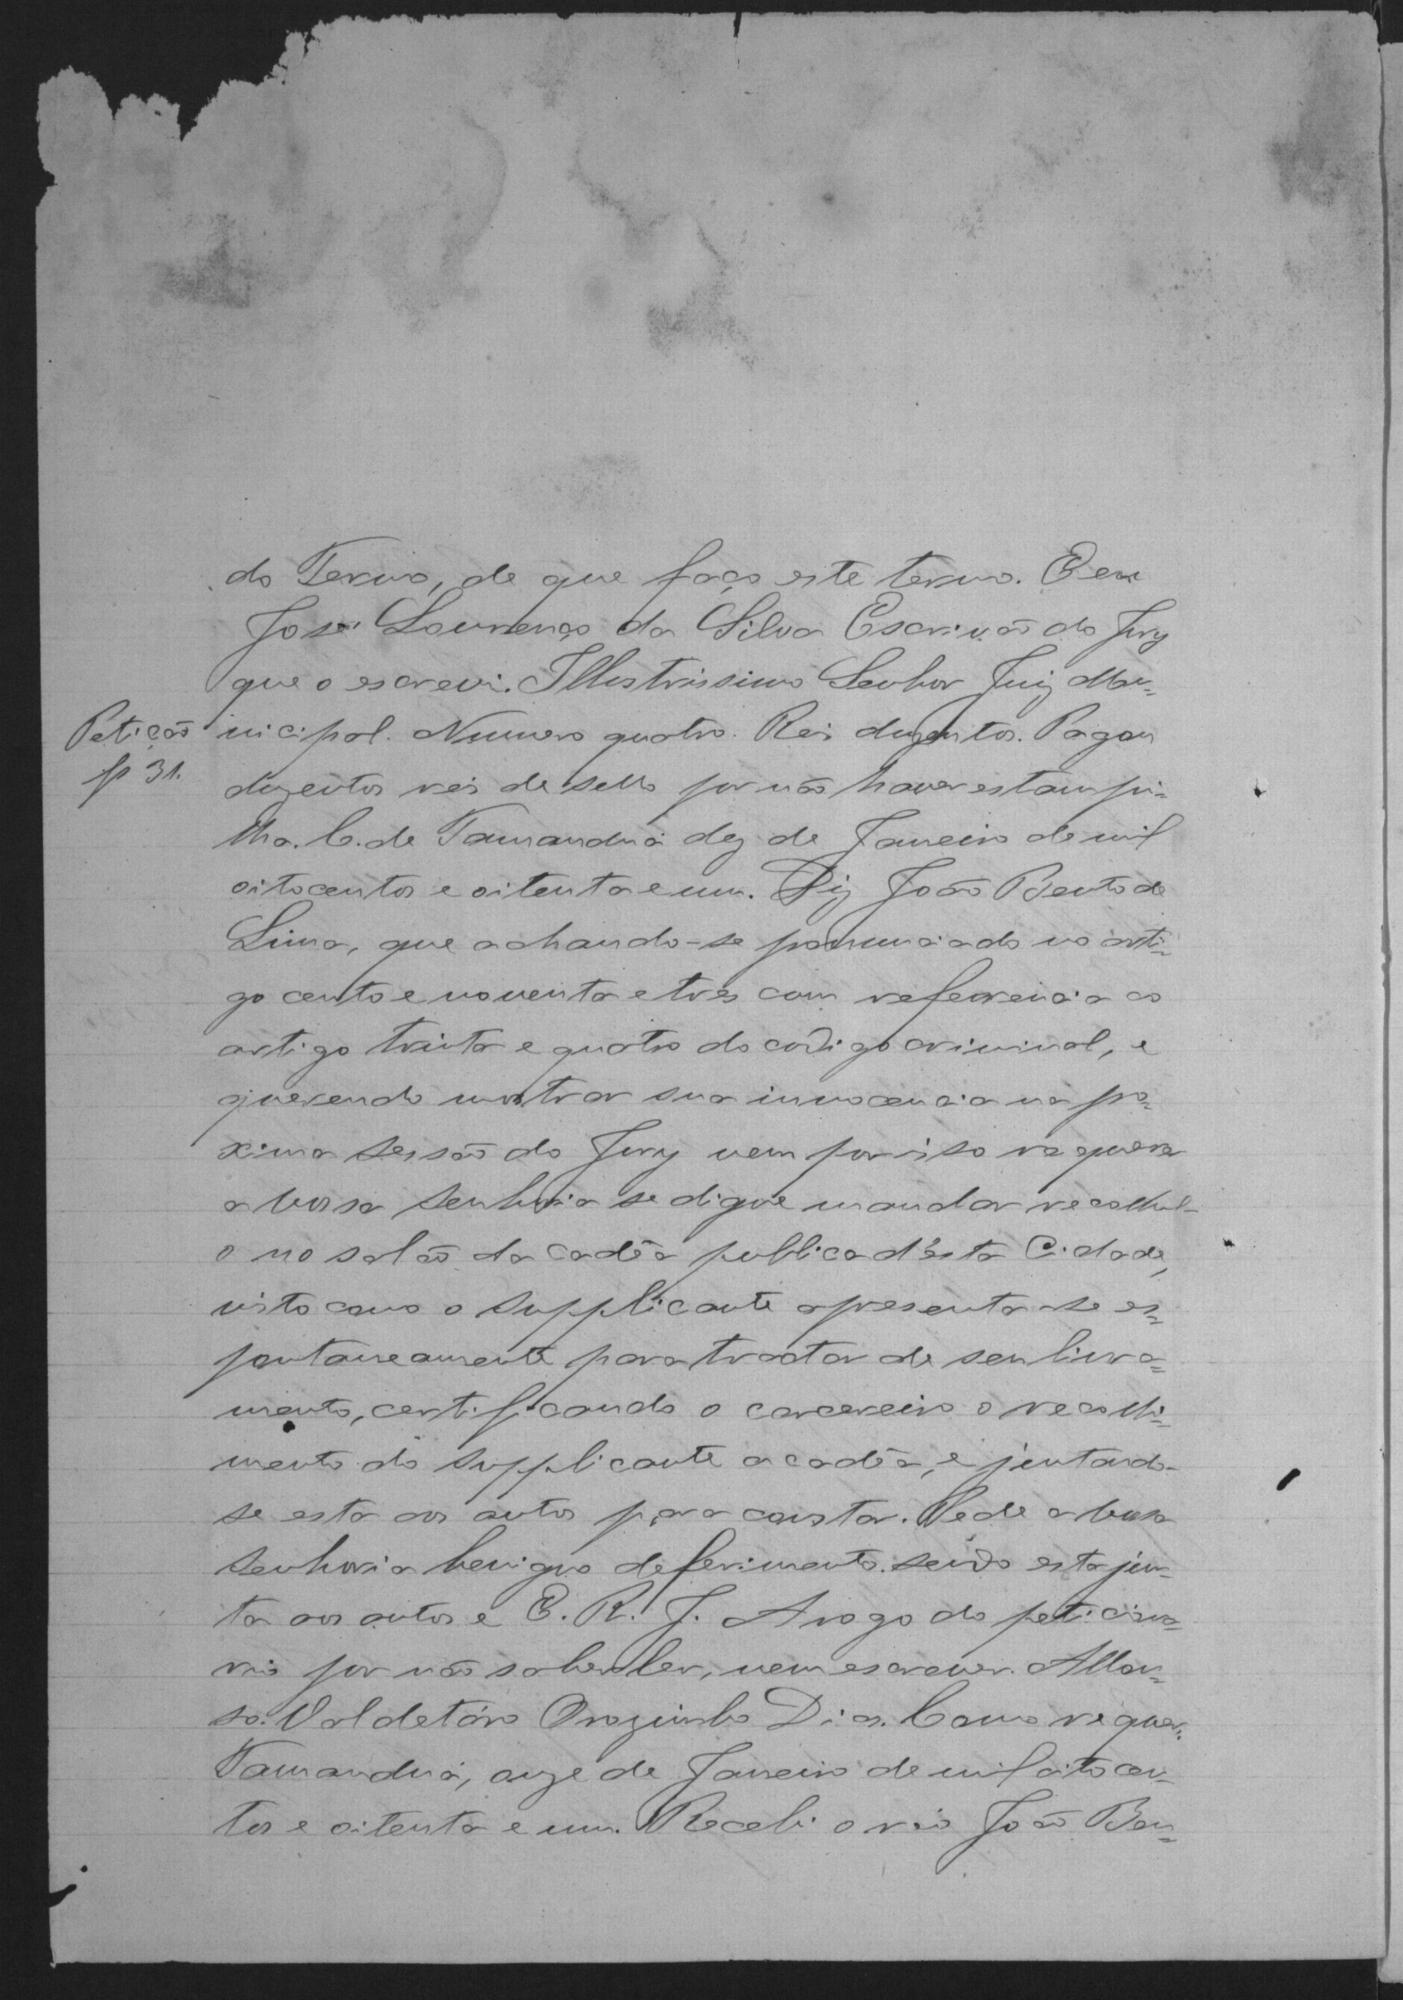 do Termo, de que faço este termo. E eu
José Lourenço da Silva Escrivão do Jury
que o escrevi. Illustrissimo Senhor Juiz Mu=
Petição
fs 31.
nicipal. Numero quatro. Reis duzentos. Pagou
duzentos reis de sello por não haver estampi=
lha. C. de Tamanduá dez de Janeiro de mil
oitocentos e oitenta e um. Diz João Bento de
Lima, que achando-se pronunciado no arti=
go cento e noventa e tres com referencia ao
artigo trinta e quatro do codigo criminal, e
querendo mostrar sua innocencia na pro=
xima sessão do Jury vem por isso requerer
a Vossa Senhoria se digne mandar recolhel-
o no salão da cadêa publica d'esta Cidade,
visto como o supplicante apresenta-se es=
pontaneamente para tractar de seu livra=
mento, certificando o carcereiro o recolhi=
mento do supplicante a cadêa, e juntando-
se esta aos autos para constar. Pede a Vossa
Senhoria benigno deferimento. sendo esta jun=
ta aos autos e E. R. J. A rogo do peticiona=
rio por não saber ler, nem escrever. Affon=
so. Valdetáro Orozimbo Dias. Como requer.
Tamanduá, onze de Janeiro de mil oitocen=
tos e oitenta e um. Recebi o réo João Ben=